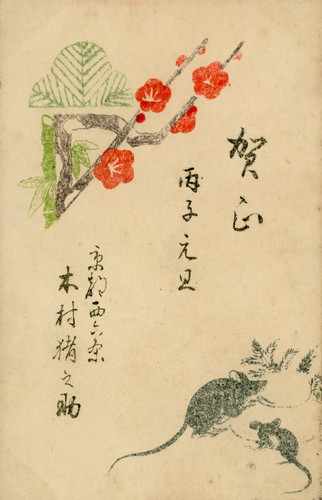 賀正
丙子元旦
京都西六条
木村猪之助